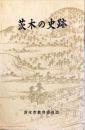 茨木の史跡
茨木市教育委員会